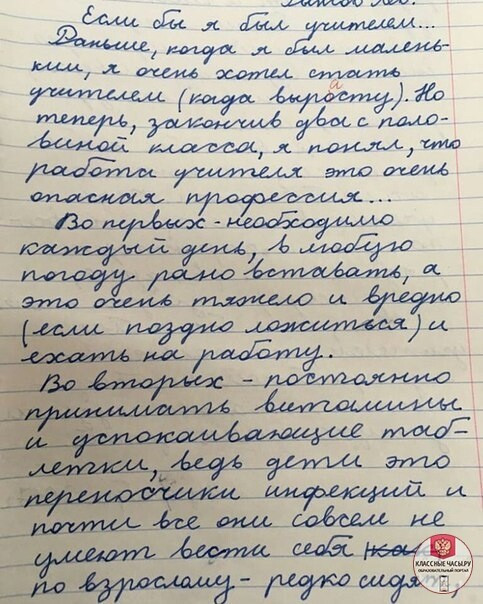 Если бы я был учителем...
Раньше, когда я был малень-
ким, я очень хотел стать
учителем (когда выросту). Но
а
теперь, закончив два с поло-
виной класса, я понял, что
работа учителя это очень
опасная профессия...
Во первых - необходимо
каждый день, в любую
погоду рано вставать, а
это очень тяжело и вредно
(если поздно ложиться) и
ехать на работу.
Во вторых - постоянно
принимать витамины
и успокаивающие таб-
летки, ведь дети это
переносчики инфекций и
почти все они совсем не
умеют вести себя
по взрослому - редко сидят,
КЛАССНЫЕ ЧАСЫ.РУ
ОБРАЗОВАТЕЛЬНЫЙ ПОРТАЛ